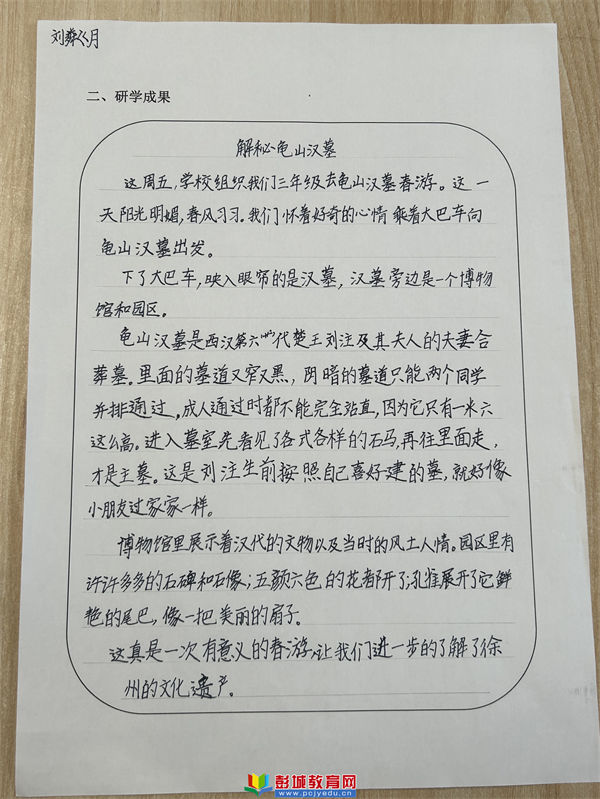 刘粦月
二、研学成果
解秘龟山汉墓
这周五,学校组织我们三年级去龟山汉墓春游。这一
天阳光明媚,春风习习。我们怀着好奇的心情乘着大巴车向
龟山汉墓出发。
下了大巴车,映入眼帘的是汉墓,汉墓旁边是一个博物
馆和园区。
龟山汉墓是西汉第六代楚王刘注及其夫人的夫妻合
葬墓。里面的墓道又窄又黑,阴暗的墓道只能两个同学
并排通过,成人通过时都不能完全站直,因为它只有一米六
这么高。进入墓室先看见了各式各样的石马,再往里面走,
才是主墓。这是刘注生前按照自己喜好建的墓,就好像
小朋友过家家一样。
博物馆里展示着汉代的文物以及当时的风土人情。园区里有
许许多多的石碑和石像;五颜六色的花都开了;孔雀展开了它鲜
艳的尾巴,像一把美丽的扇子。
这真是一次有意义的春游,让我们进一步的了解了徐
州的文化遗产。
彭城教育网
www.pcjyedu.cn